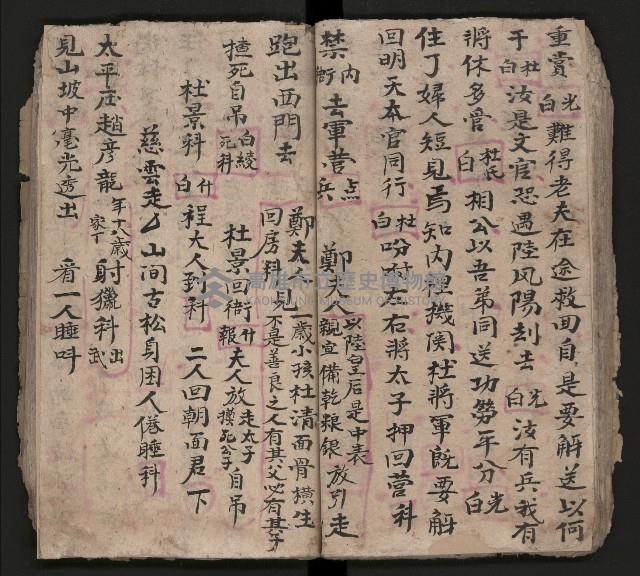 重賞 光白 難得老夫在途救回自是要解送以何
干 杜白 汝是文官恐遇陸风陽刦去 光白 汝有兵我有
將休多管 杜氏白 相公以吾弟同送功勞平分 光白
住了婦人短見焉知內里機関杜將軍既要解
回明天本官同行 杜白 吩咐左右將太子押回营科
禁內衙 去軍营 点兵 鄭夫人 以陸皇后是中表 親宣備乾粮銀 放引走
跑出西門去 鄭夫 一歲小孩杜清面骨橫生 回房科 見 不是善良之人有其父必有其子
擡死自吊 白綾死科 杜景回衙 什報 夫人放 走太子 摸死公子 自吊
杜景科 什白 程大人到科 二人回朝面君 下
慈雲走 山间古松身困人倦睡科
太平庄趙彦龍 年十八歲 家丁 射獵科 出武
見山坡中毫光透出 看一人睡叫
高雄市立歷史博物館
KAOHSIUNG MUSEUM OF HISTORY